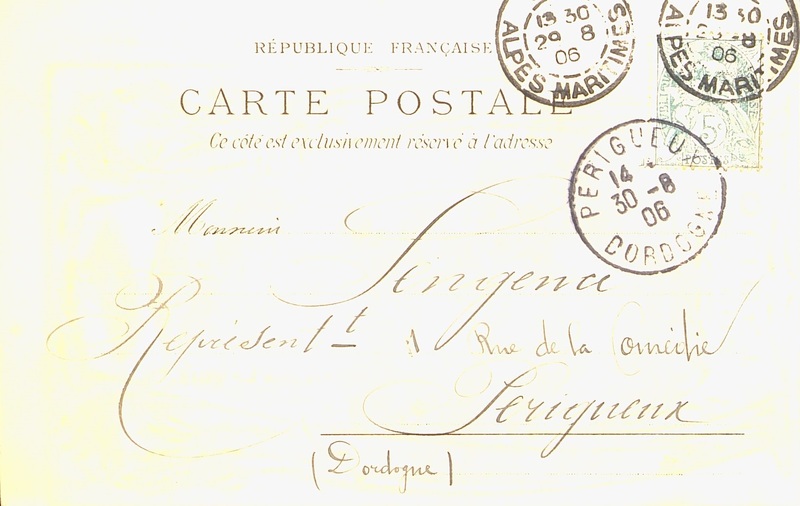 RÉPUBLIQUE FRANÇAISE
CARTE POSTALE
Ce côté est exclusivement réservé à l'adresse
13 30
29 8
06
ALPES MARITIMES
13 30
29 8
06
ALPES MARITIMES
5
POSTES
PERIGUEUX
14
30 -8
06
DORDOGNE
Monsieur
Représent.t
1 Rue de la Comédie
Périgueux
(Dordogne)